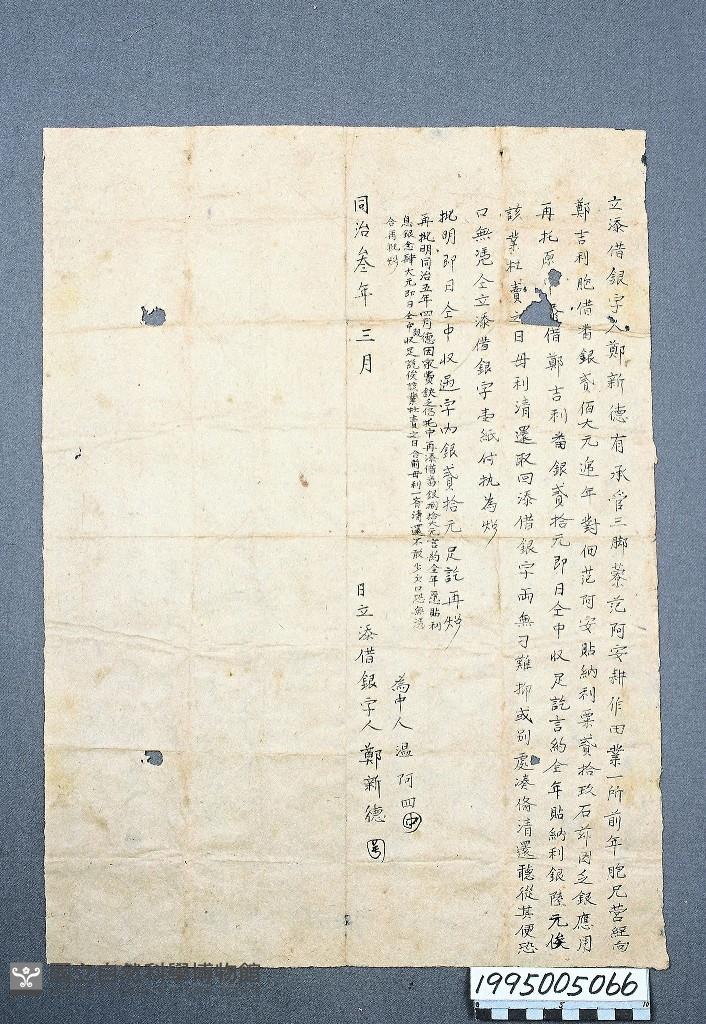 立添借銀字人鄭新德有承管三脚藔范阿安耕作田業一所前年胞兄營經向
鄭吉利胞借番銀貳佰大元遞年對佃范阿安貼納利粟貳拾玖石茲因乏銀應用
再托原中添借鄭吉利番銀貳拾元即日仝中收足訖言約全年貼納利銀陸元俟
該業杜賣之日母利清還取回添借銀字兩無刁難抑或別處湊偹清還聽從其便恐
口無憑仝立添借銀字壹紙付执為炤
批明即日仝中收過字內銀貳拾元足訖再炤
再批明同治五年四月德因家費缺乏托中再添借番銀捌拾大元言約全年愿貼利
息銀念肆大元即日仝中收足訖俟該業杜賣之日合前母利一齊清還不敢少欠口恐無憑
合再批炤
為中人溫阿四
同治叁年三月日立添借銀字人鄭新德
國立自然科學博物館
1995005066